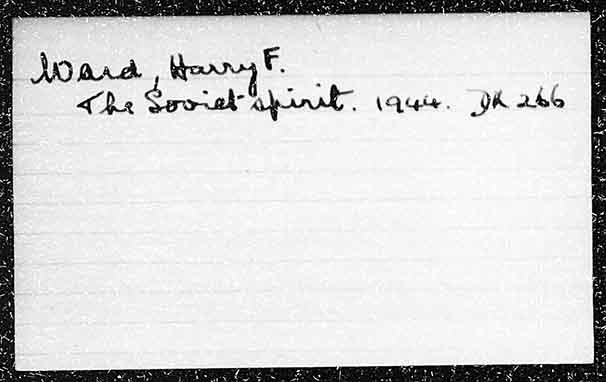 Ward, Harry F.
The Soviet spirit. 1944. DK 266